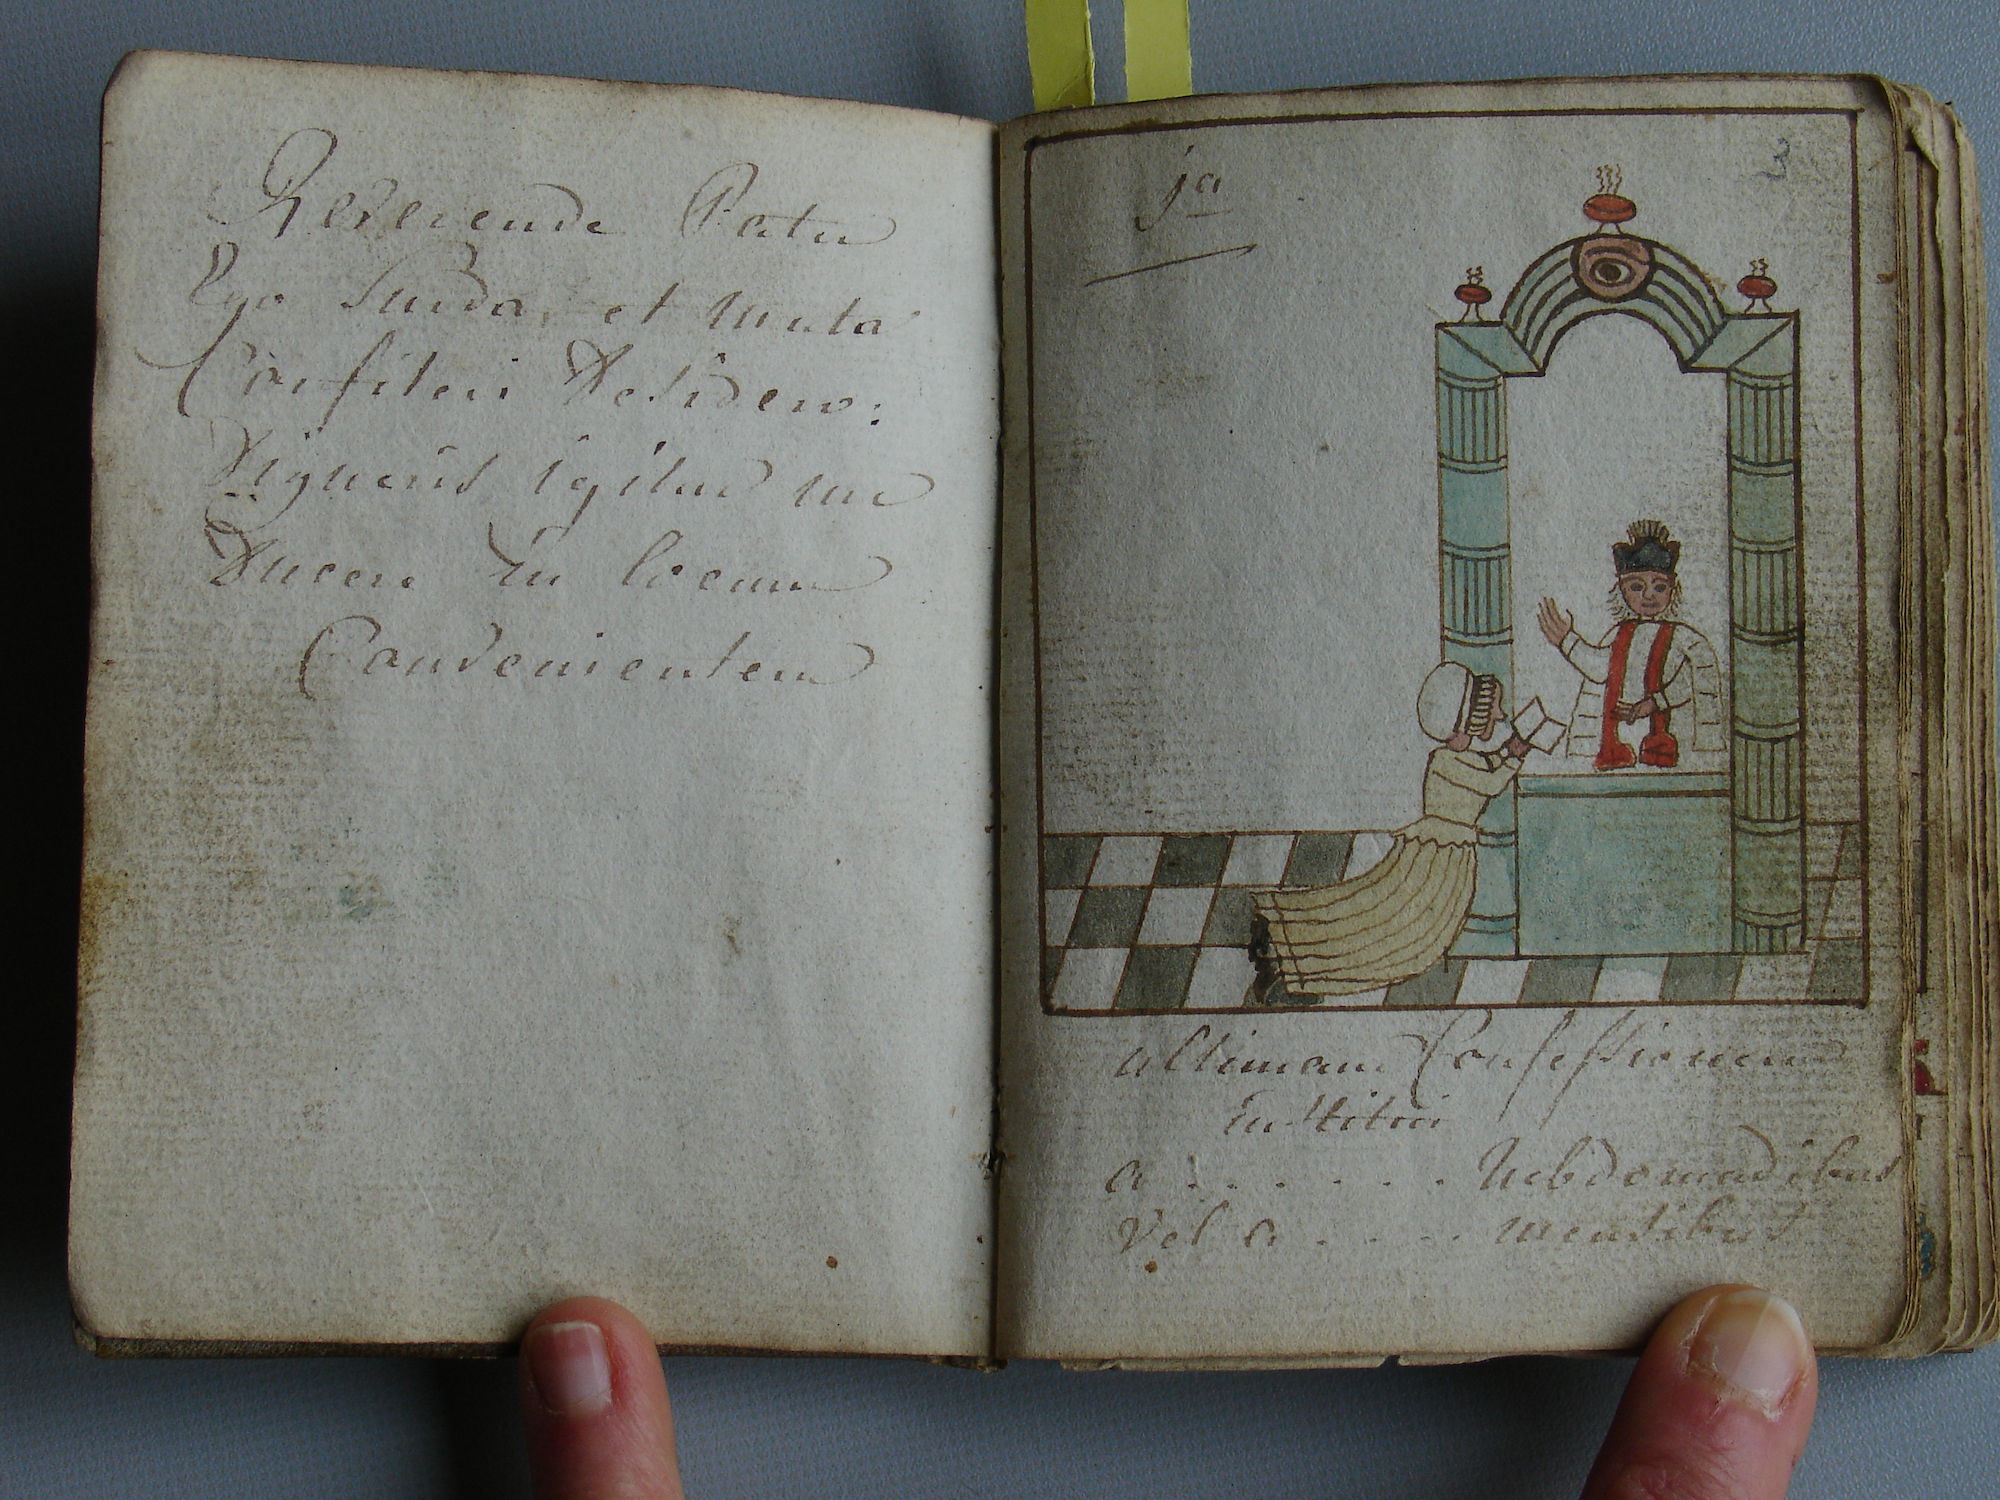 Reverende Pater
Ego Surda, et muta
Confiteri Desidero:
Digneris igitur me
Ducere in locum
Convenientem
3
ja
ultimam Confessionem
Institui
a . . . . . . hebdomadibus
Vel a . . . . mensibus